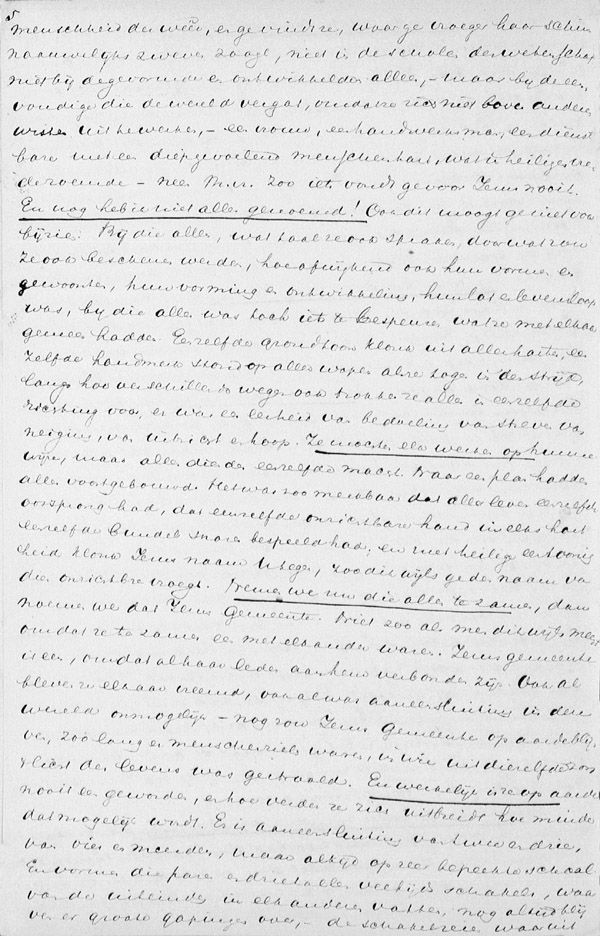 5
menschheid der weer, er gevind re, waar ge vroeger haar schim
nauwelijks zweven zaagt, niet in de scholen der wetenschap
niet bij de gevormde en ontwikkelden alleen, – maar bij de een
voudigen die de wereld vergat, omdat ze zich niet boven anderen
wisten uit te werken, – een vrouw, een handwerksman, een dienst
bare met een diep gevoelend menschenhart, wat 'n heilige
– neen M.Vr. Zoo iets wordt gevoor Jezus nooit.
En nog heb ik niet alles genoemd! Ook dit moogt ge niet voor
bijzien: Bij die allen, wat taal ze ook spraken, door wat zon
ze ook beschenen werden, hoe afwijkend ook hun vormen en
gewoonten, hun vorming en ontwikkeling, hun lot en levensloop
was, bij die allen was toch iets te bespeuren wat ze met elkaar
gemeen hadden. Eenzelfde grondtoon klonk uit aller harte, een
zelfde handmerk stond op aller wapen als ze togen in den strijd,
langs hoe verschillende wegen ook trokken ze allen in eenzelfde
richting voor, er was eenheid van bedoeling van streven van
neiging, van uitzicht en hoop. Ze mochten elk werken op hunne
wijze, maar allen dienden eenzelfde macht. Naar een plan hadden
allen voortgebouwd. Het was zoo merkbaar dat aller leven eenzelfde
oorsprong had, dat eenzelfde onzichtbare hand in elks hart
eenzelfde bundel snaren bespeeld had; en met heilige eentonig
heid klonk Jezus naam U tegen, zoo dikwijls ge den naam van
dien onzichtbre vroegt. Nemen we nu die allen te zamen, dan
noemen we dat Jezus Gemeente. Niet zoo als men dikwijls meent
omdat ze te zamen een met elkander waren. Jezus gemeente
is een, omdat al haar leden aan hem verbonden zijn. Ook al
bleven ze elkaar vreemd, ook al was aaneensluiting in deze
wereld onmogelijk – nog zou Jezus Gemeente op aarde blij
ven, zoo lang er menschenziels waren, in wie uit diezelfde zon
't licht des levens was gestraald. En werkelijk is ze op aarde
nooit een geworden, en hoe verder ze zich uitbreidt hoe minder
dat mogelijk wordt. Er is aaneensluiting van twee en drie,
van vier en meerdere, maar altijd op zeer beperkte schaal.
En vormen die paren en drietallen veelvijds schakels, waar
van de uiteinden in elkanders vatten, nog altijd blij
ven er groote gapingen over, – de schakelreeks waaruit